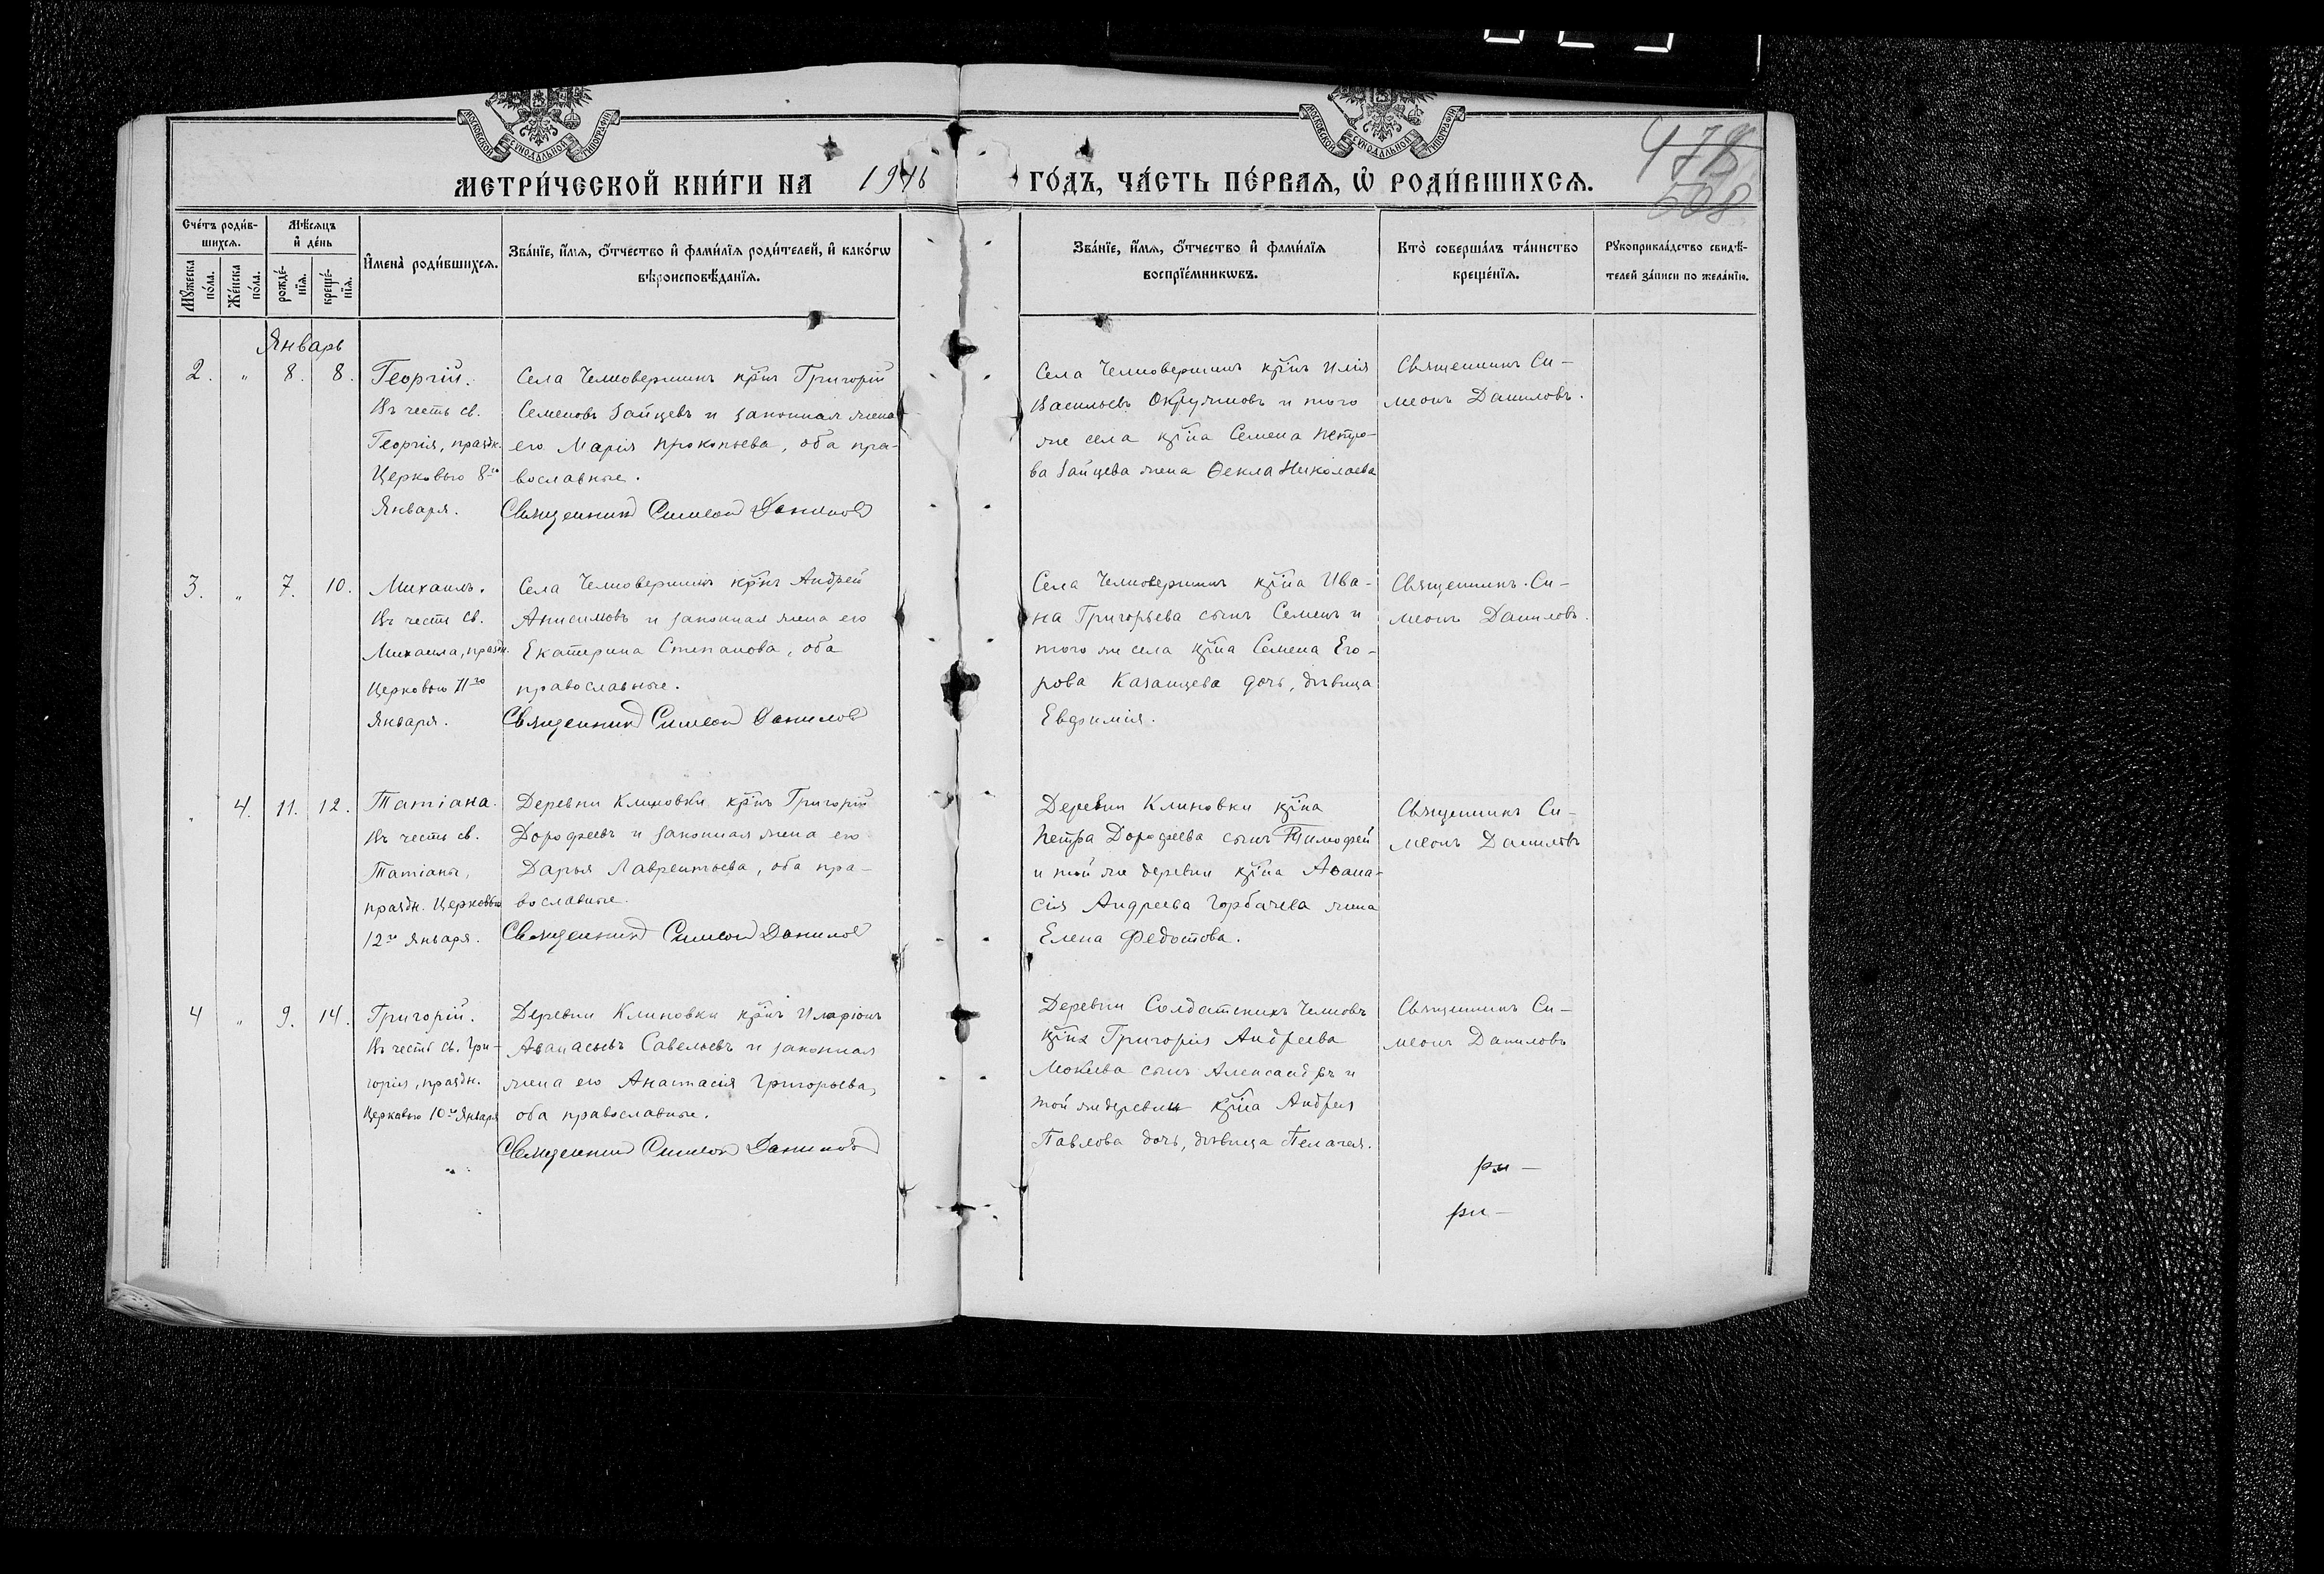 МОСКОВСКОЙ СѴНОДАЛЬНОЙ ТИПОГРАФІИ
МОСКОВСКОЙ СѴНОДАЛЬНОЙ ТИПОГРАФІИ
478
508
МЕТРИ́ЧЕСКОЙ КНИ́ГИ НА 1916
ГО́ДЪ, ЧА́СТЬ ПЕ́РВАЯ, Ѡ҆ РОДИ́ВШИХСЯ.
Сче́тъ роди́в-
шихся.
Мꙋ́жеска по́ла.
Же́нска по́ла.
Мѣ́сяцъ
и҆ де́нь
рожде́-
нїя.
креще́-
нїя.
И҆мена̀ роди́вшихся.
Зва́нїе, и҆́мя, ѻ҆́тчество и҆ фами́лїя роди́телей, и҆ како́гѡ
вѣроисповѣ́данїя.
Зва́нїе, и҆́мя, ѻ҆́тчество и҆ фами́лїя
воспрїе́мникѡвъ.
Кто̀ соверша́лъ та́инство
креще́нїя.
Рꙋкоприкла́дство свидѣ́-
телей за́писи по жела́нїю.
Январь
2. „ 8. 8.
Георгій.
Въ честь св.
Георгія, праздн.
Церковью 8го
Января.
Села Челновершинъ крнъ Григорій
Семеновъ Зайцевъ и законная жена
его Марія Прокопьева, оба пра-
вославные.
Священникъ Симеонъ Даниловъ
Села Челновершинъ крнъ Илія
Васильевъ Окружновъ и того
же села крна Семена Петро-
ва Зайцева жена Ѳекла Николаева
Священникъ Си-
меонъ Даниловъ.
3. „ 7. 10.
Михаилъ.
Въ честь св.
Михаила, праздн.
Церковью 11го
Января.
Села Челновершинъ крнъ Андрей
Анисимовъ и законная жена его
Екатерина Степанова, оба
православные.
Священникъ Симеонъ Даниловъ
Села Челновершинъ крна Ива-
на Григорьева сынъ Семенъ и
того же села крна Семена Его-
рова Казанцева дочь, дѣвица
Евфимія.
Священникъ Си-
меонъ Даниловъ.
„ 4. 11. 12.
Татіана.
Въ честь св.
Татіаны,
праздн. Церковью
12го Января.
Деревни Клиновки крнъ Григорій
Дорофеевъ и законная жена его
Дарья Лаврентьева, оба пра-
вославные.
Священникъ Симеонъ Даниловъ
Деревни Клиновки крна
Петра Дорофеева сынъ Тимофей
и той же деревни крна Аѳана-
сія Андреева Горбачева жена
Елена Федотова.
Священникъ Си-
меонъ Даниловъ
4 „ 9. 14.
Григорій.
Въ честь св. Гри-
горія, праздн.
Церковью 10го Января
Деревни Клиновки крнъ Иларіонъ
Аѳанасьевъ Савельевъ и законная
жена его Анастасія Григорьева,
оба православные.
Священникъ Симеонъ Даниловъ
Деревни Солдатскихъ Челновъ
крна Григорія Андреева
Мокѣева сынъ Александръ и
той же деревни крна Андрея
Павлова дочь, дѣвица Пелагея.
Священникъ Си-
меонъ Даниловъ